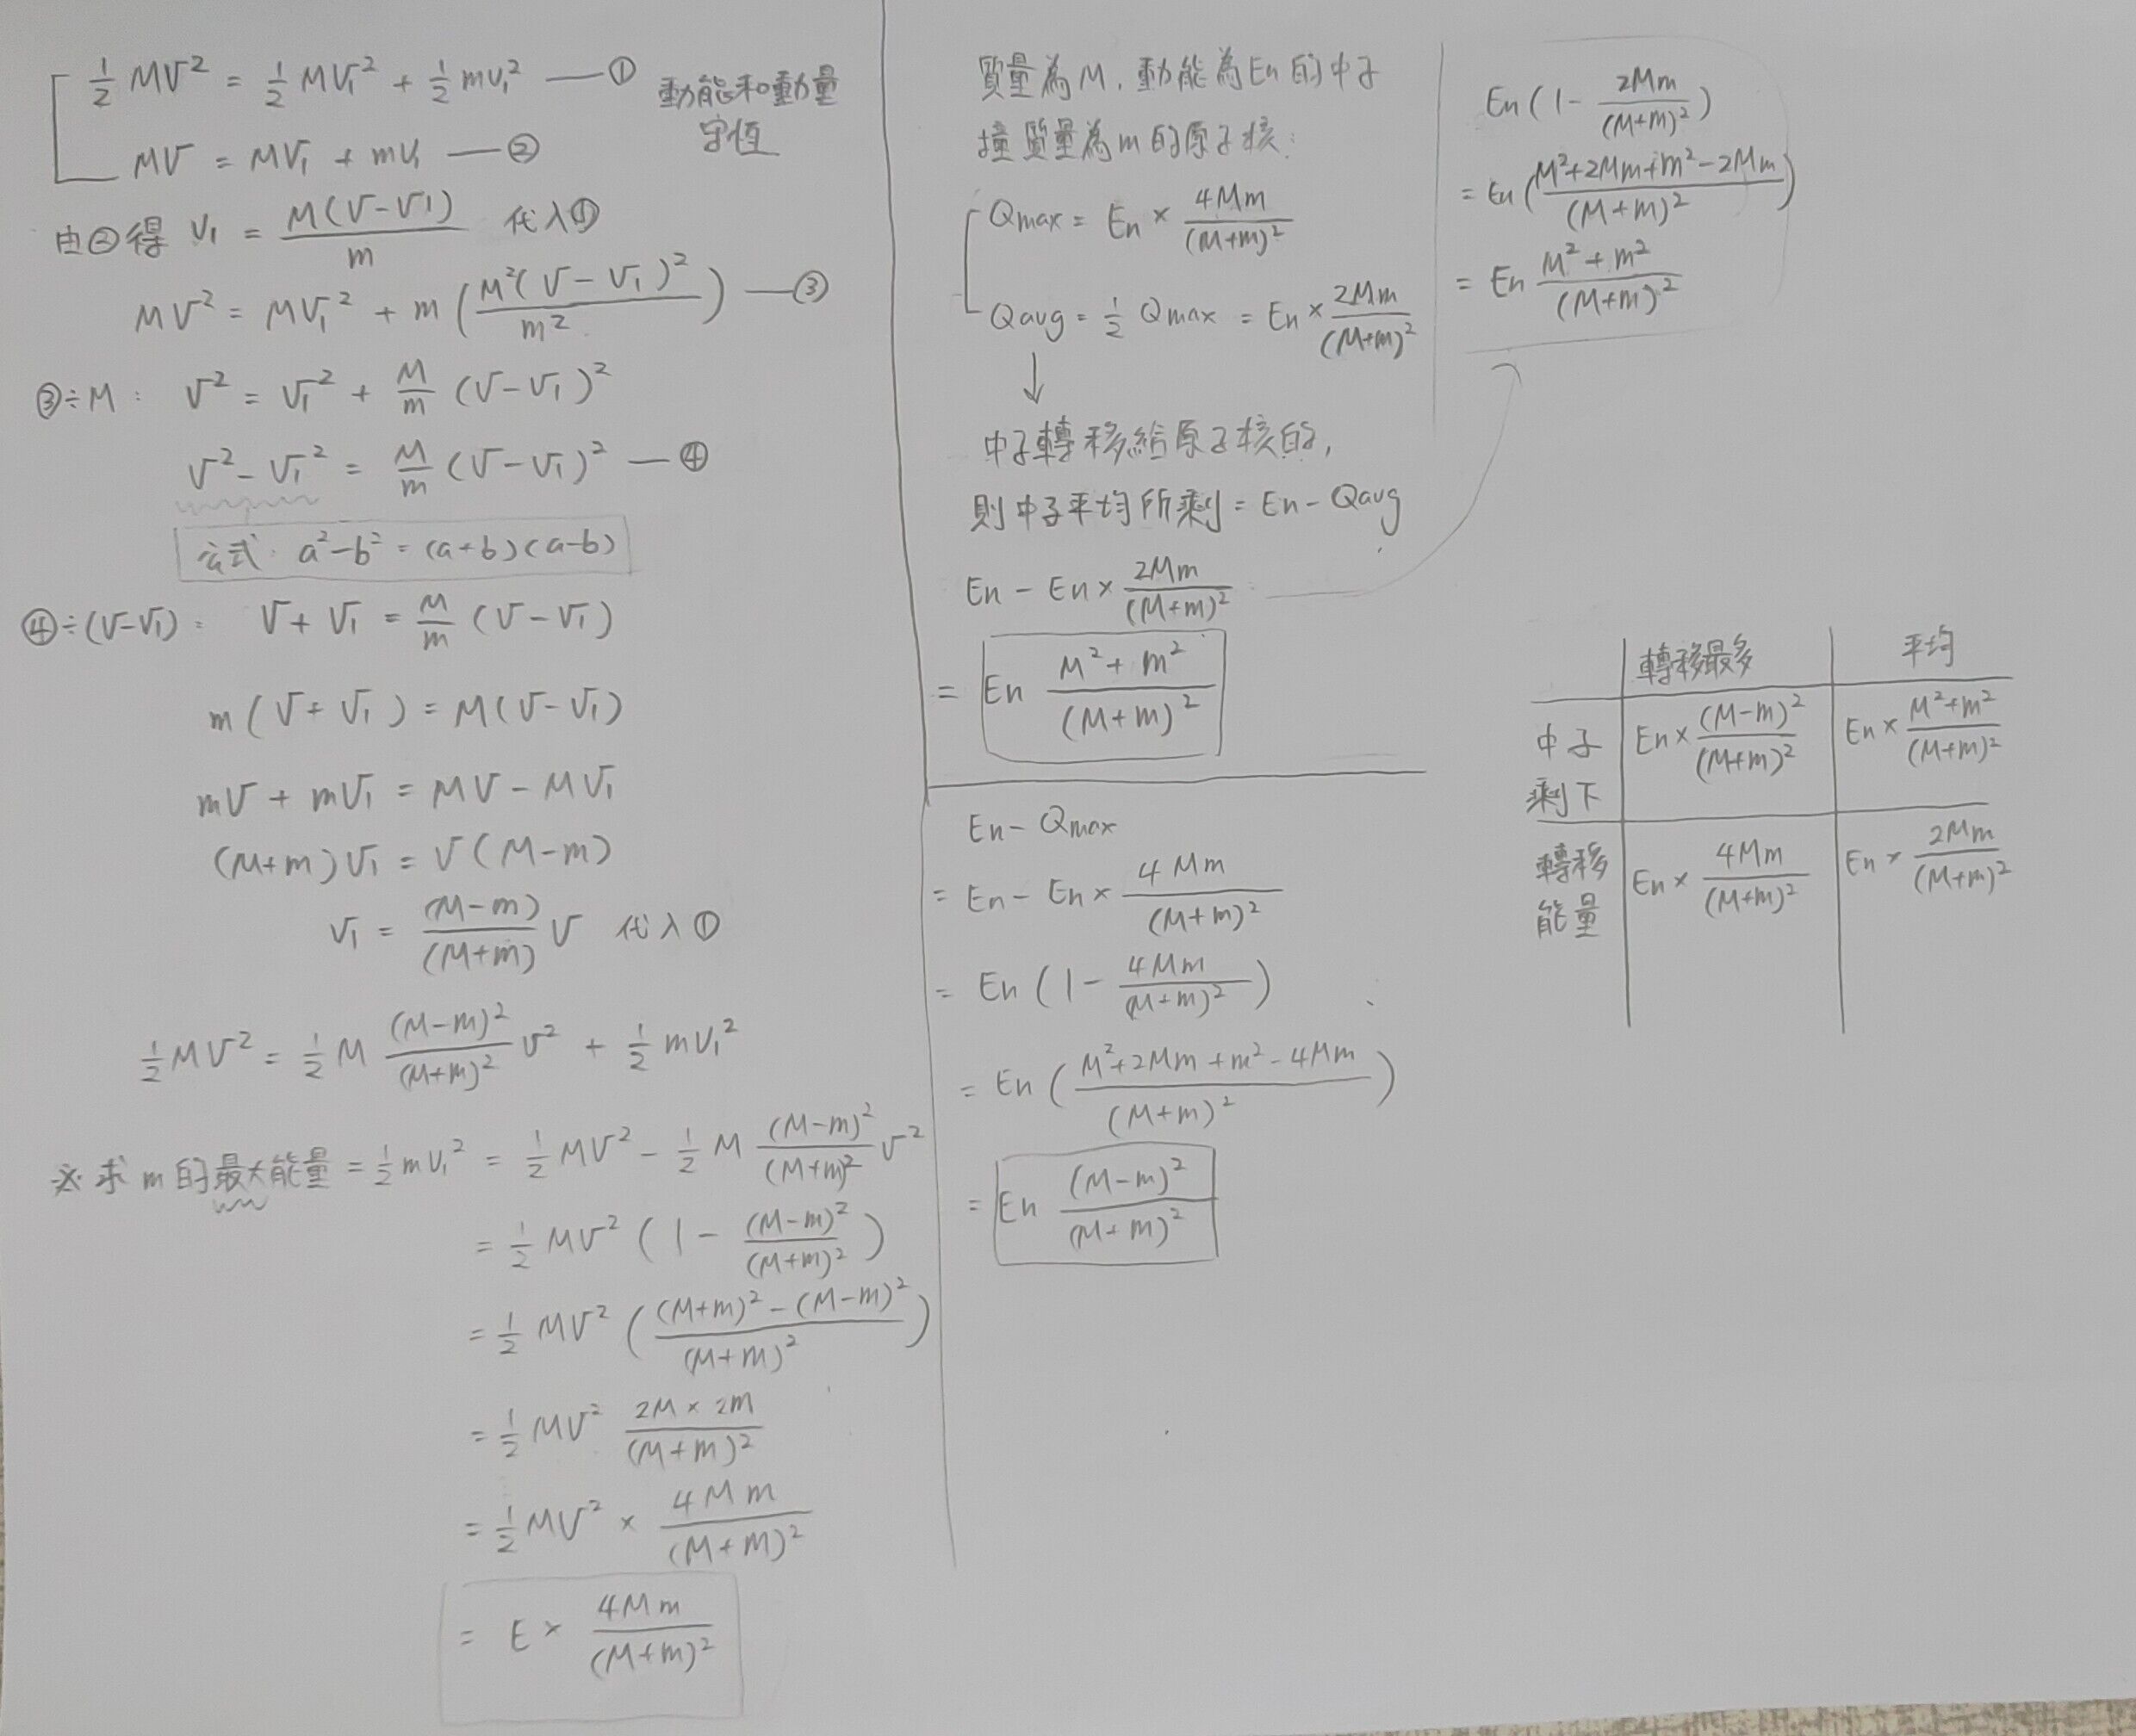 ½ MV² = ½ MV₁² + ½ mv₁² — ① 動能和動量
守恆
MV = MV₁ + mv₁ — ②
由②得 v₁ = M(V-V₁)/m 代入①
MV² = MV₁² + m (M²(V-V₁)²/m²) — ③
③÷M: V² = V₁² + M/m (V-V₁)²
V² - V₁² = M/m (V-V₁)² — ④
公式: a²-b² = (a+b)(a-b)
④÷(V-V₁): V+V₁ = M/m (V-V₁)
m(V+V₁) = M(V-V₁)
mV + mV₁ = MV - MV₁
(M+m)V₁ = V(M-m)
V₁ = (M-m)/(M+m) V 代入①
½MV² = ½ M (M-m)²/(M+m)² V² + ½ mv₁²
※ 求 m 的最大能量 = ½ mv₁² = ½ MV² - ½ M (M-m)²/(M+m)² V²
= ½ MV² (1 - (M-m)²/(M+m)²)
= ½ MV² (((M+m)² - (M-m)²)/(M+m)²)
= ½ MV² 2M × 2m/(M+m)²
= ½ MV² × 4Mm/(M+m)²
= E × 4Mm/(M+m)²
質量為M, 動能為En的中子
撞質量為m的原子核:
Qmax = En × 4Mm/(M+m)²
Qavg = ½ Qmax = En × 2Mm/(M+m)²
↓
中子轉移給原子核的,
則中子平均所剩 = En - Qavg
En - En × 2Mm/(M+m)²
= En M²+m²/(M+m)²
En - Qmax
= En - En × 4Mm/(M+m)²
= En (1 - 4Mm/(M+m)²)
= En (M²+2Mm+m²-4Mm/(M+m)²)
= En (M-m)²/(M+m)²
En (1 - 2Mm/(M+m)²)
= En (M²+2Mm+m²-2Mm/(M+m)²)
= En M²+m²/(M+m)²
轉移最多 平均
中子剩下 En × (M-m)²/(M+m)² En × M²+m²/(M+m)²
轉移能量 En × 4Mm/(M+m)² En × 2Mm/(M+m)²